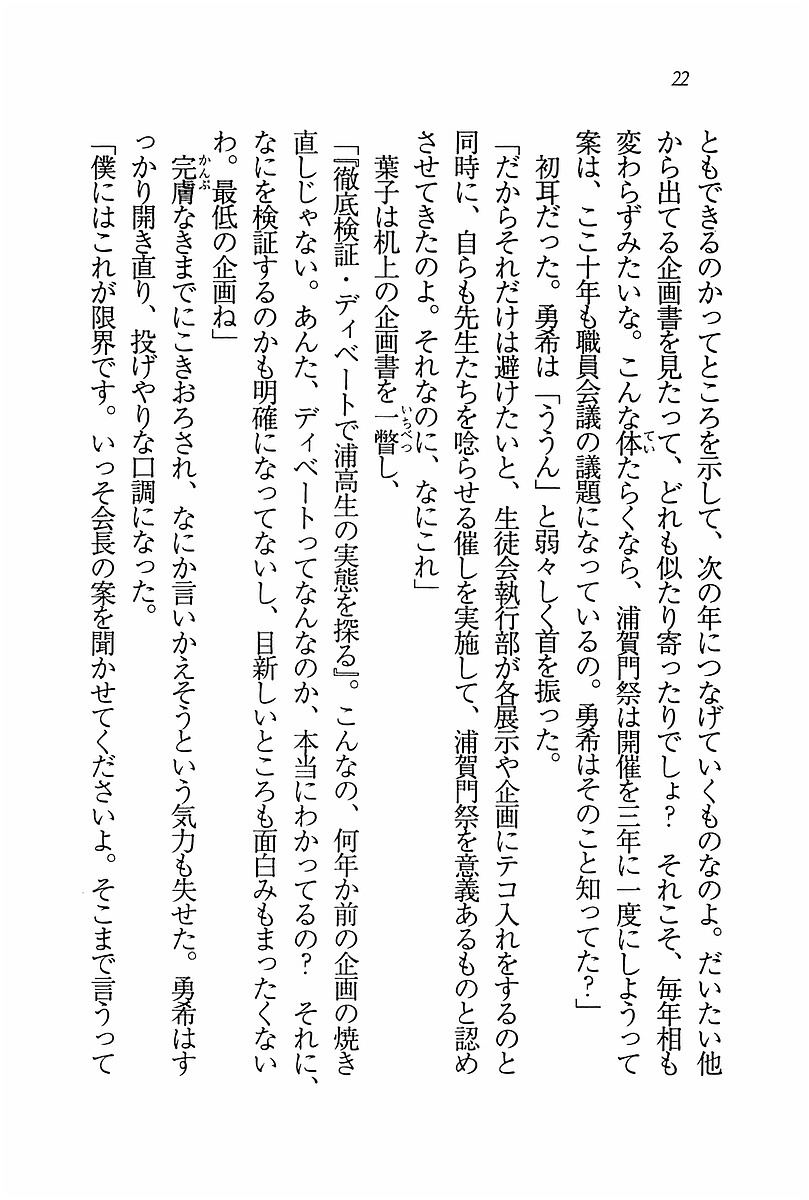 22
ともできるのかってところを示して、次の年につなげていくものなのよ。だいたい他
から出てる企画書を見たって、どれも似たり寄ったりでしょ？　それこそ、毎年相も
変わらずみたいな。こんな体たらくなら、浦賀門祭は開催を三年に一度にしようって
てい
案は、ここ十年も職員会議の議題になっているの。勇希はそのこと知ってた？」
初耳だった。勇希は「ううん」と弱々しく首を振った。
「だからそれだけは避けたいと、生徒会執行部が各展示や企画にテコ入れをするのと
同時に、自らも先生たちを唸らせる催しを実施して、浦賀門祭を意義あるものと認め
させてきたのよ。それなのに、なにこれ」
葉子は机上の企画書を一瞥し、
いちべつ
「『徹底検証・ディベートで浦高生の実態を探る』。こんなの、何年か前の企画の焼き
直しじゃない。あんた、ディベートってなんなのか、本当にわかってるの？　それに、
なにを検証するのかも明確になってないし、目新しいところも面白みもまったくない
わ。最低の企画ね」
完膚なきまでにこきおろされ、なにか言いかえそうという気力も失せた。勇希はす
かんぷ
っかり開き直り、投げやりな口調になった。
「僕にはこれが限界です。いっそ会長の案を聞かせてくださいよ。そこまで言うって